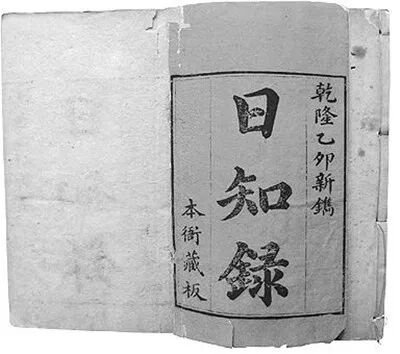 乾隆乙卯新鐫
日知録
本衙藏板